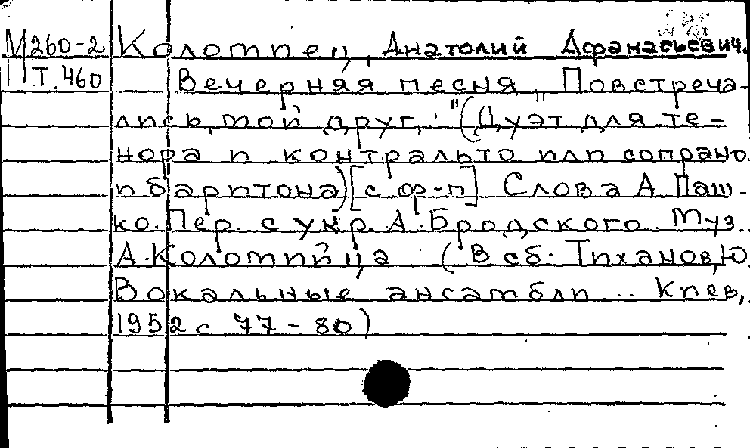 М260-2 Коломиец, Анатолий Афанасьевич.
Т.460 Вечерняя песня „Повстреча-
лись, мой друг..." (Дуэт для те-
нора и контральто или сопрано
и баритона) [с ф-п] Слова А. Паш-
ко. Пер. с укр. А. Бродского. Муз.
А. Коломийца (В сб: Тиханов, Ю
Вокальные ансамбли... Киев,
1952 с 77-80)